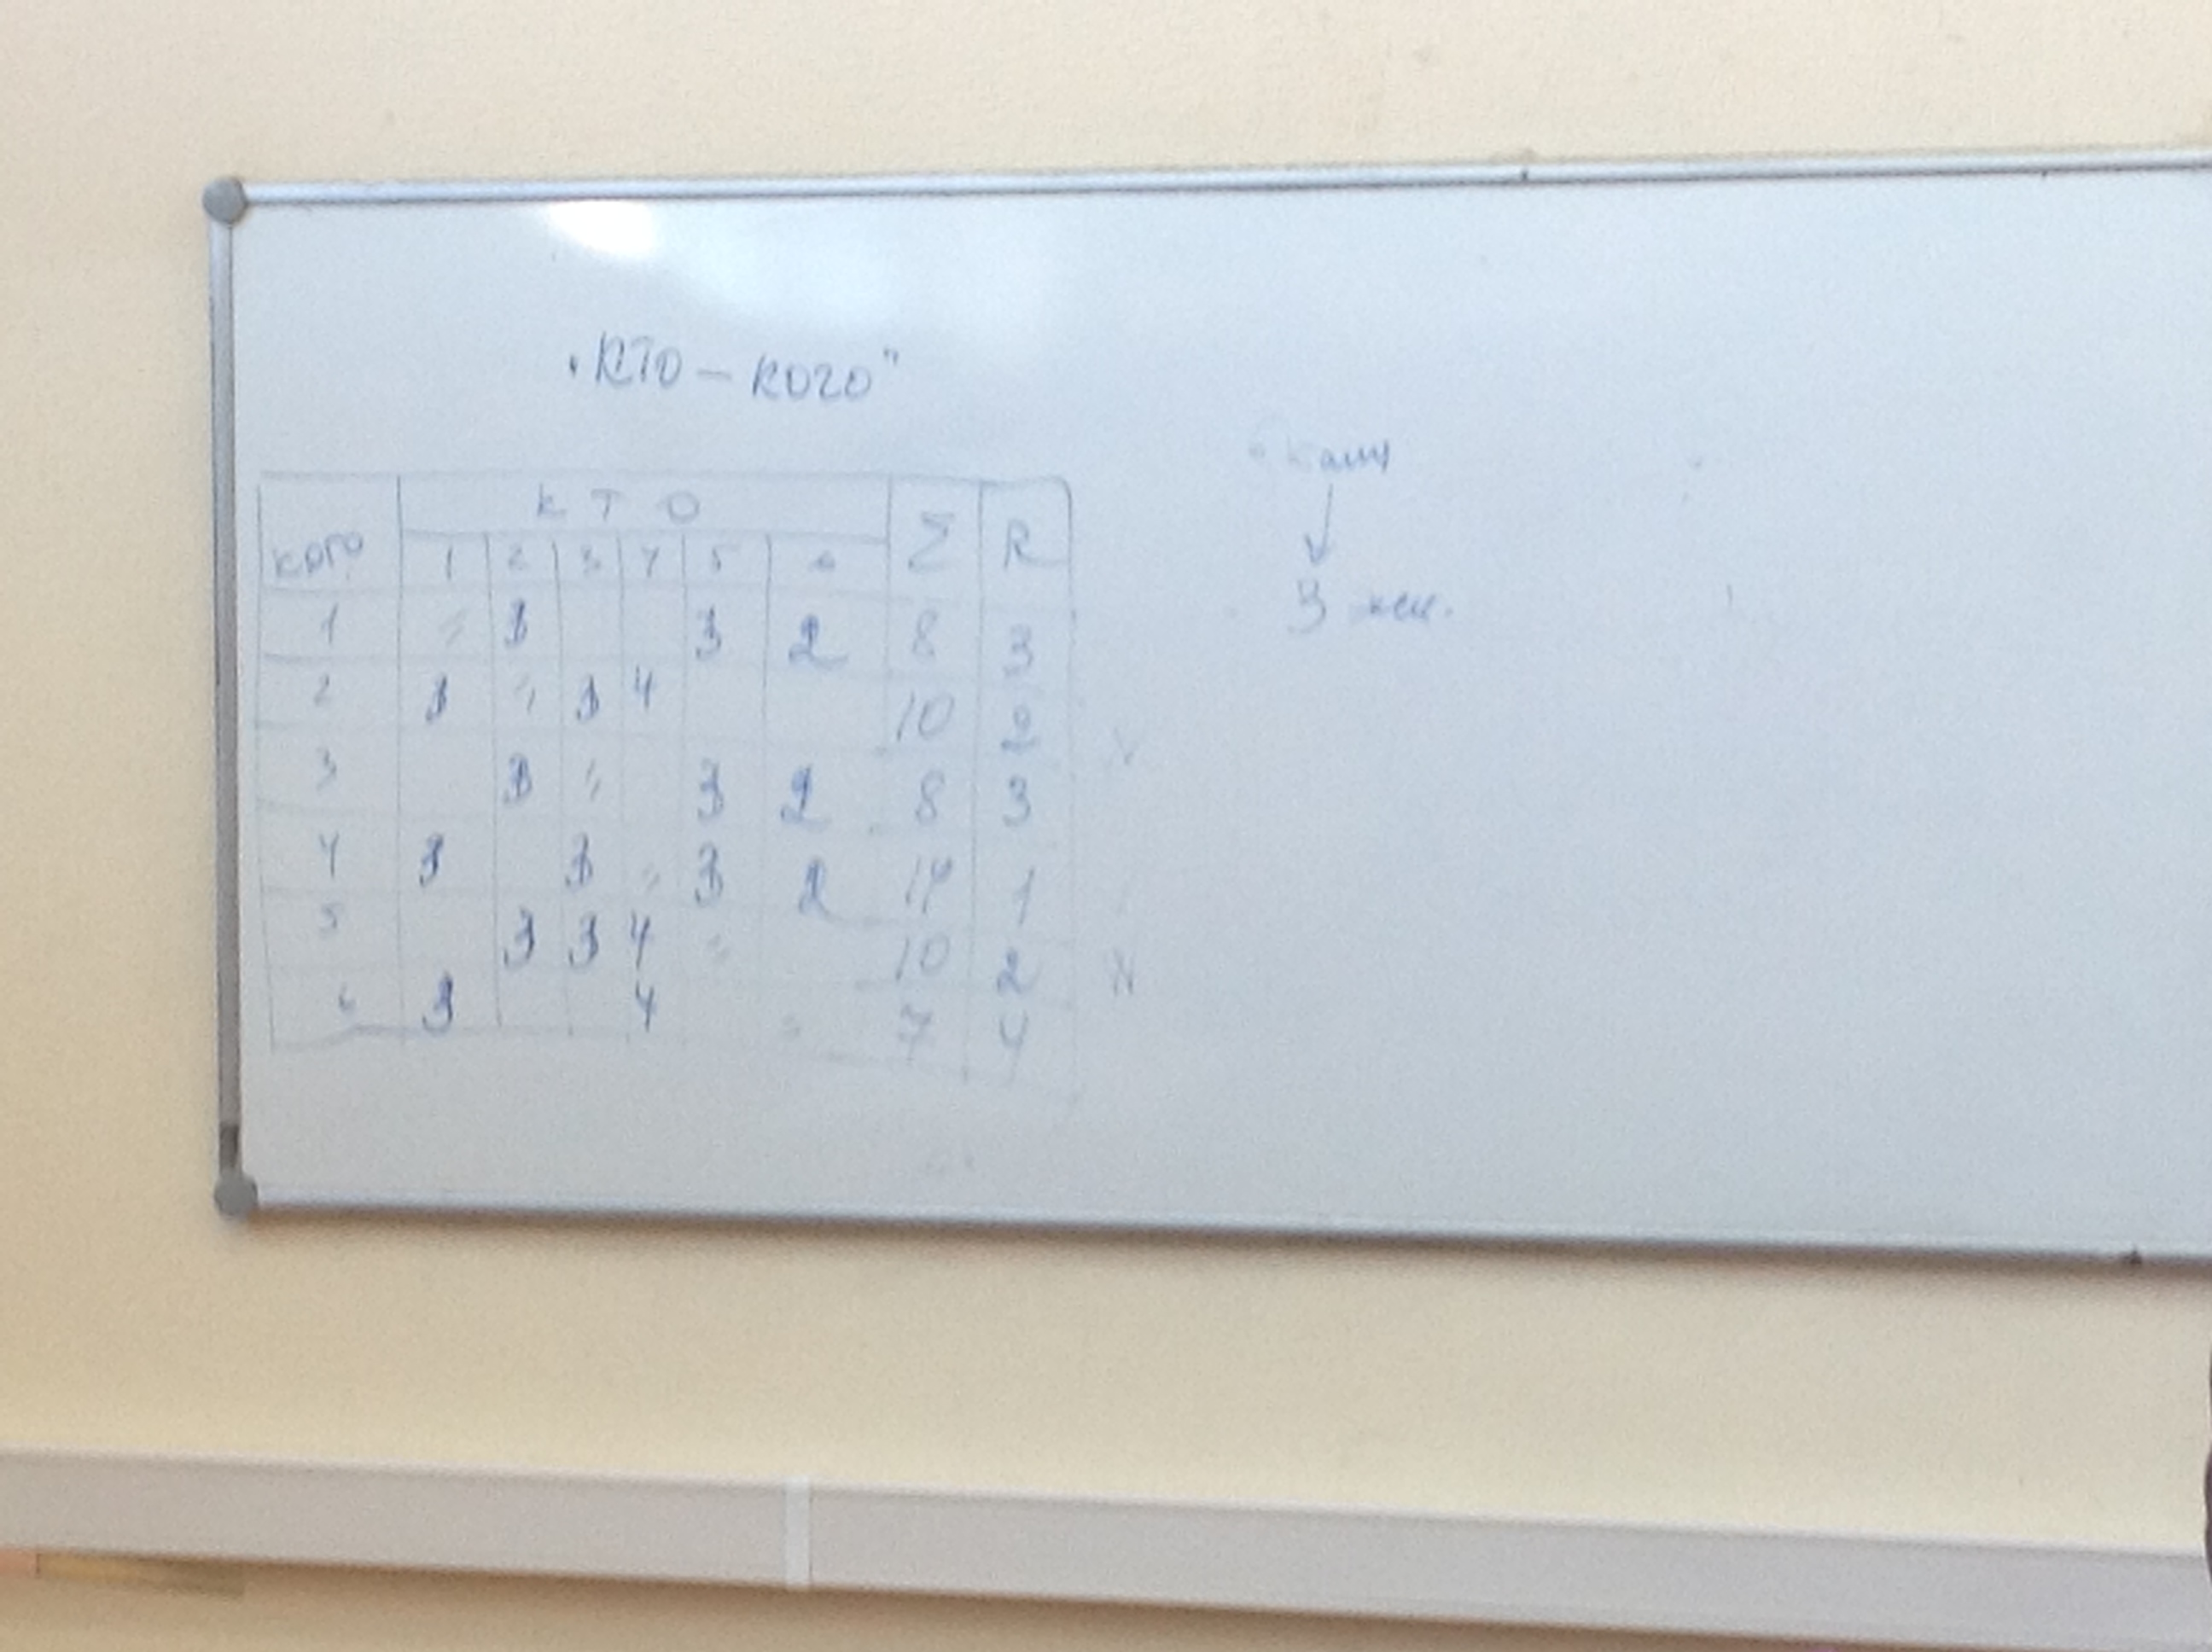 "КТО – КОГО"
КОГО К Т О Σ R
1 2 3 4 5 6
1 3 3 2 8 3
2 3 3 4 10 2
3 3 3 2 8 3
4 3 3 3 2 1
5 3 3 4 10 2
6 3 4 7 4
3